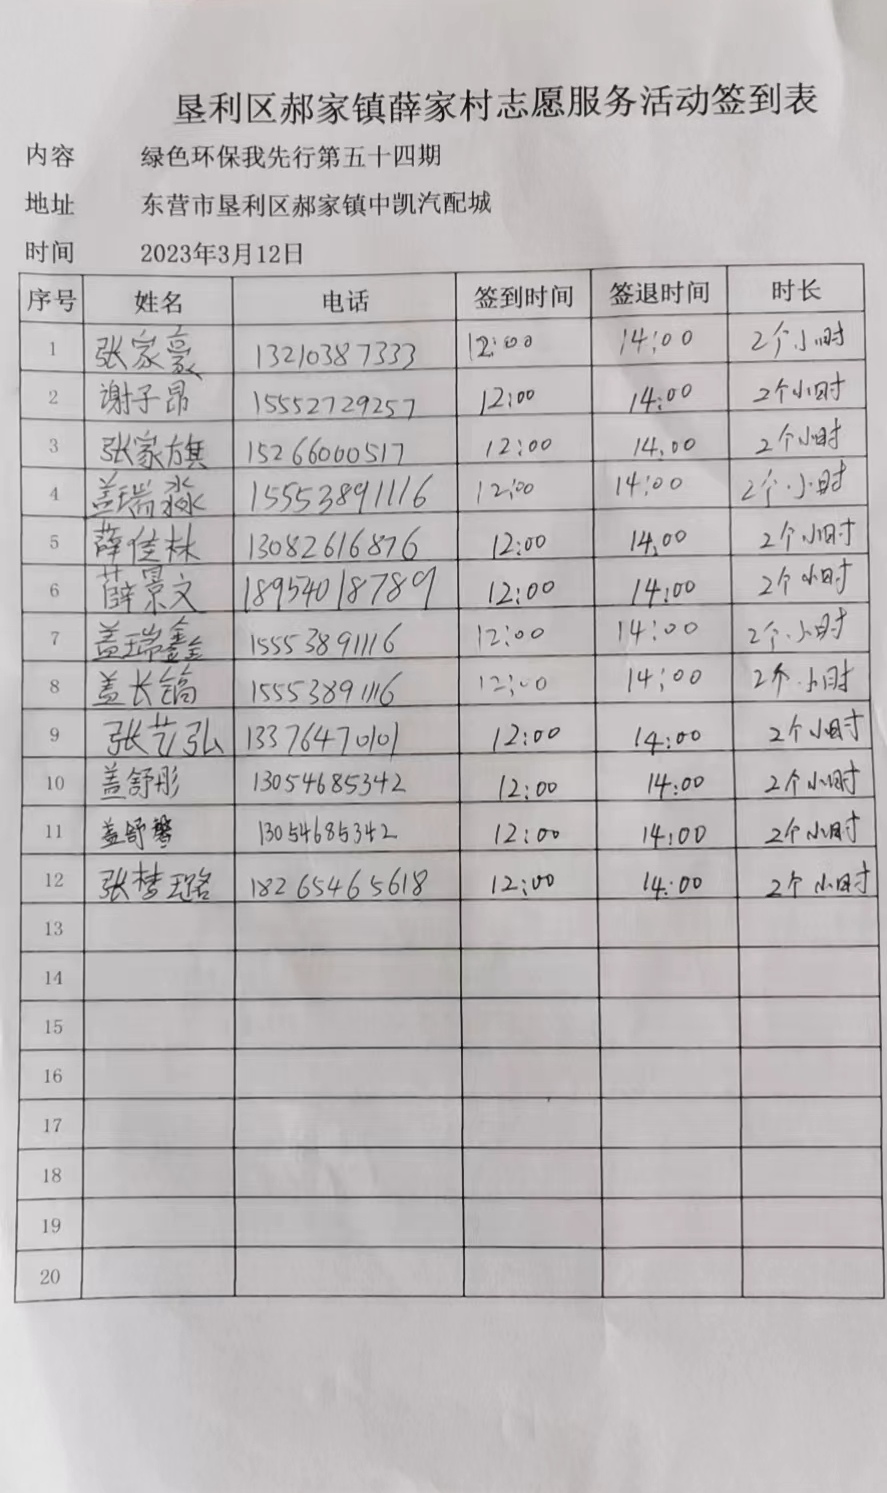 垦利区郝家镇薛家村志愿服务活动签到表
内容 绿色环保我先行第五十四期
地址 东营市垦利区郝家镇中凯汽配城
时间 2023年3月12日
序号 姓名 电话 签到时间 签退时间 时长
1 张家豪 13210387333 12:00 14:00 2个小时
2 谢子昂 15552729257 12:00 14:00 2个小时
3 张家旗 15266000517 12:00 14:00 2个小时
4 盖瑞淼 15553891116 12:00 14:00 2个小时
5 薛佳林 13082616876 12:00 14:00 2个小时
6 薛景文 18954018789 12:00 14:00 2个小时
7 盖瑞鑫 15553891116 12:00 14:00 2个小时
8 盖长镐 15553891116 12:00 14:00 2个小时
9 张艺弘 13376470101 12:00 14:00 2个小时
10 盖舒彤 13054685342 12:00 14:00 2个小时
11 盖舒馨 13054685342 12:00 14:00 2个小时
12 张梦珞 18265465618 12:00 14:00 2个小时
13
14
15
16
17
18
19
20